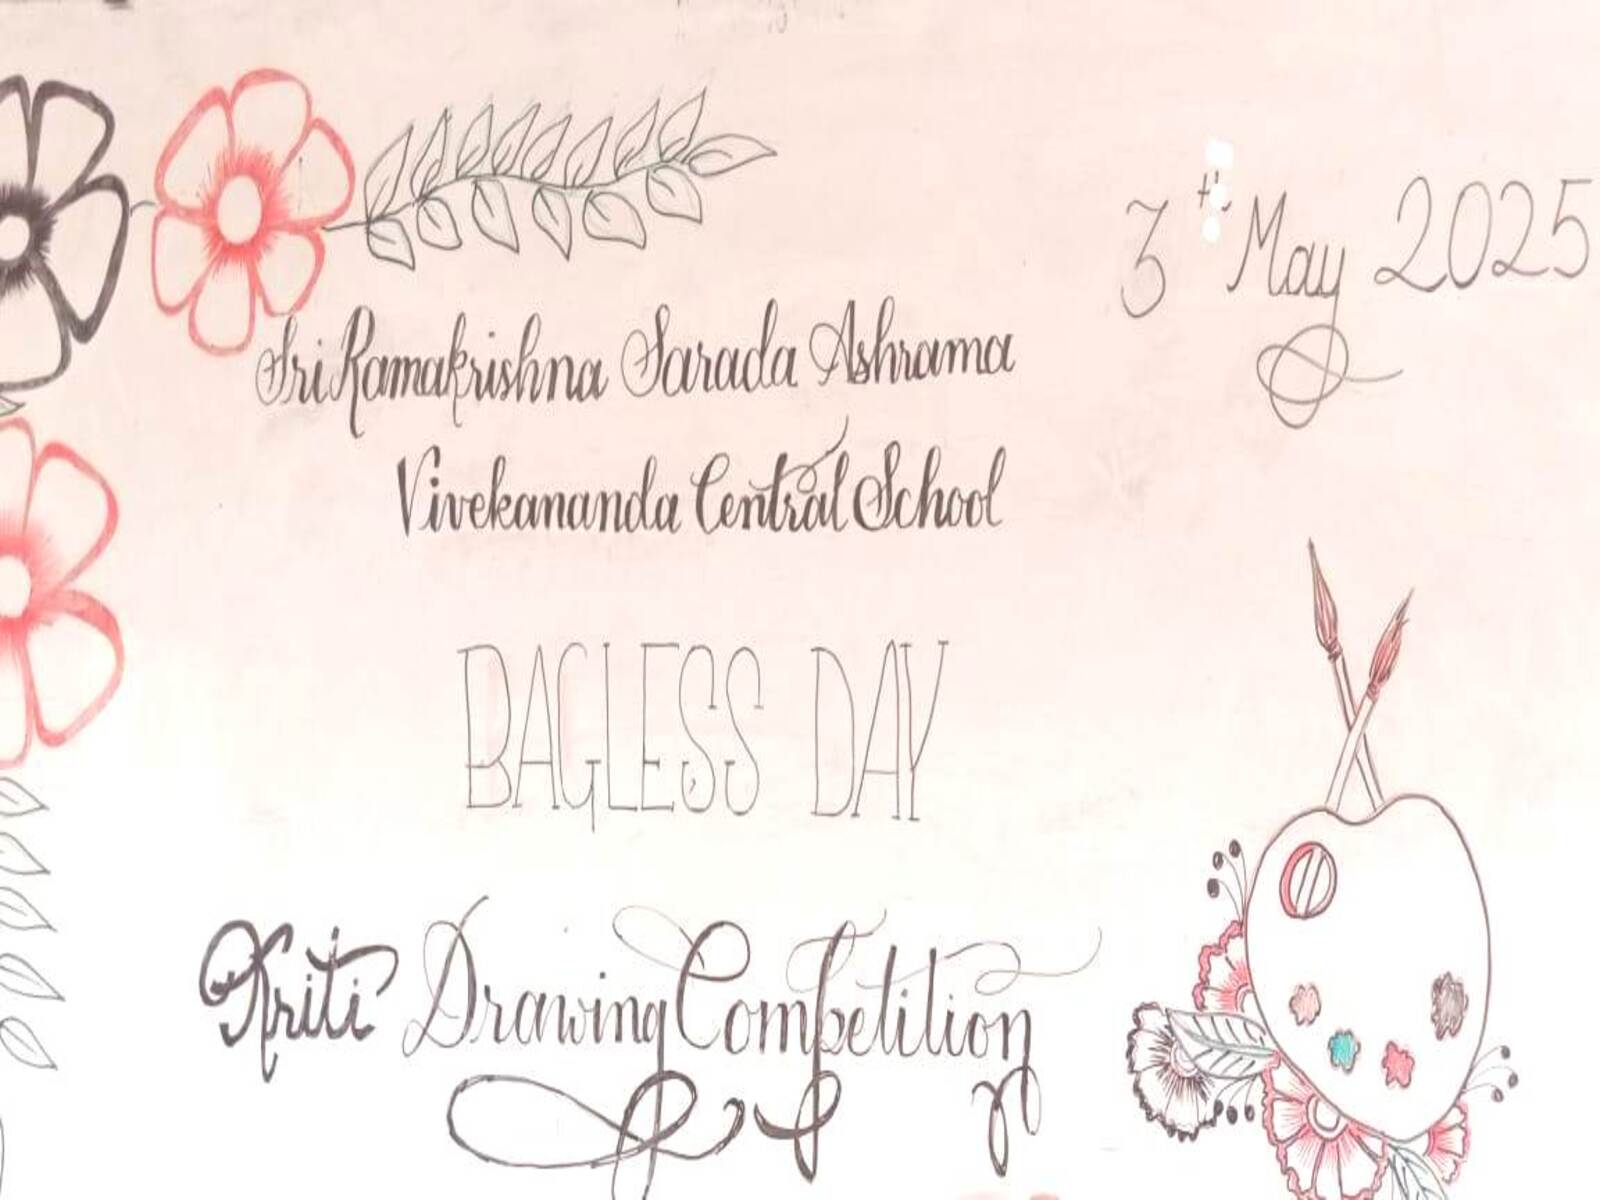 3th May 2025
Sri Ramakrishna Sarada Ashrama
Vivekananda Central School
BAGLESS DAY
Kriti Drawing Competition